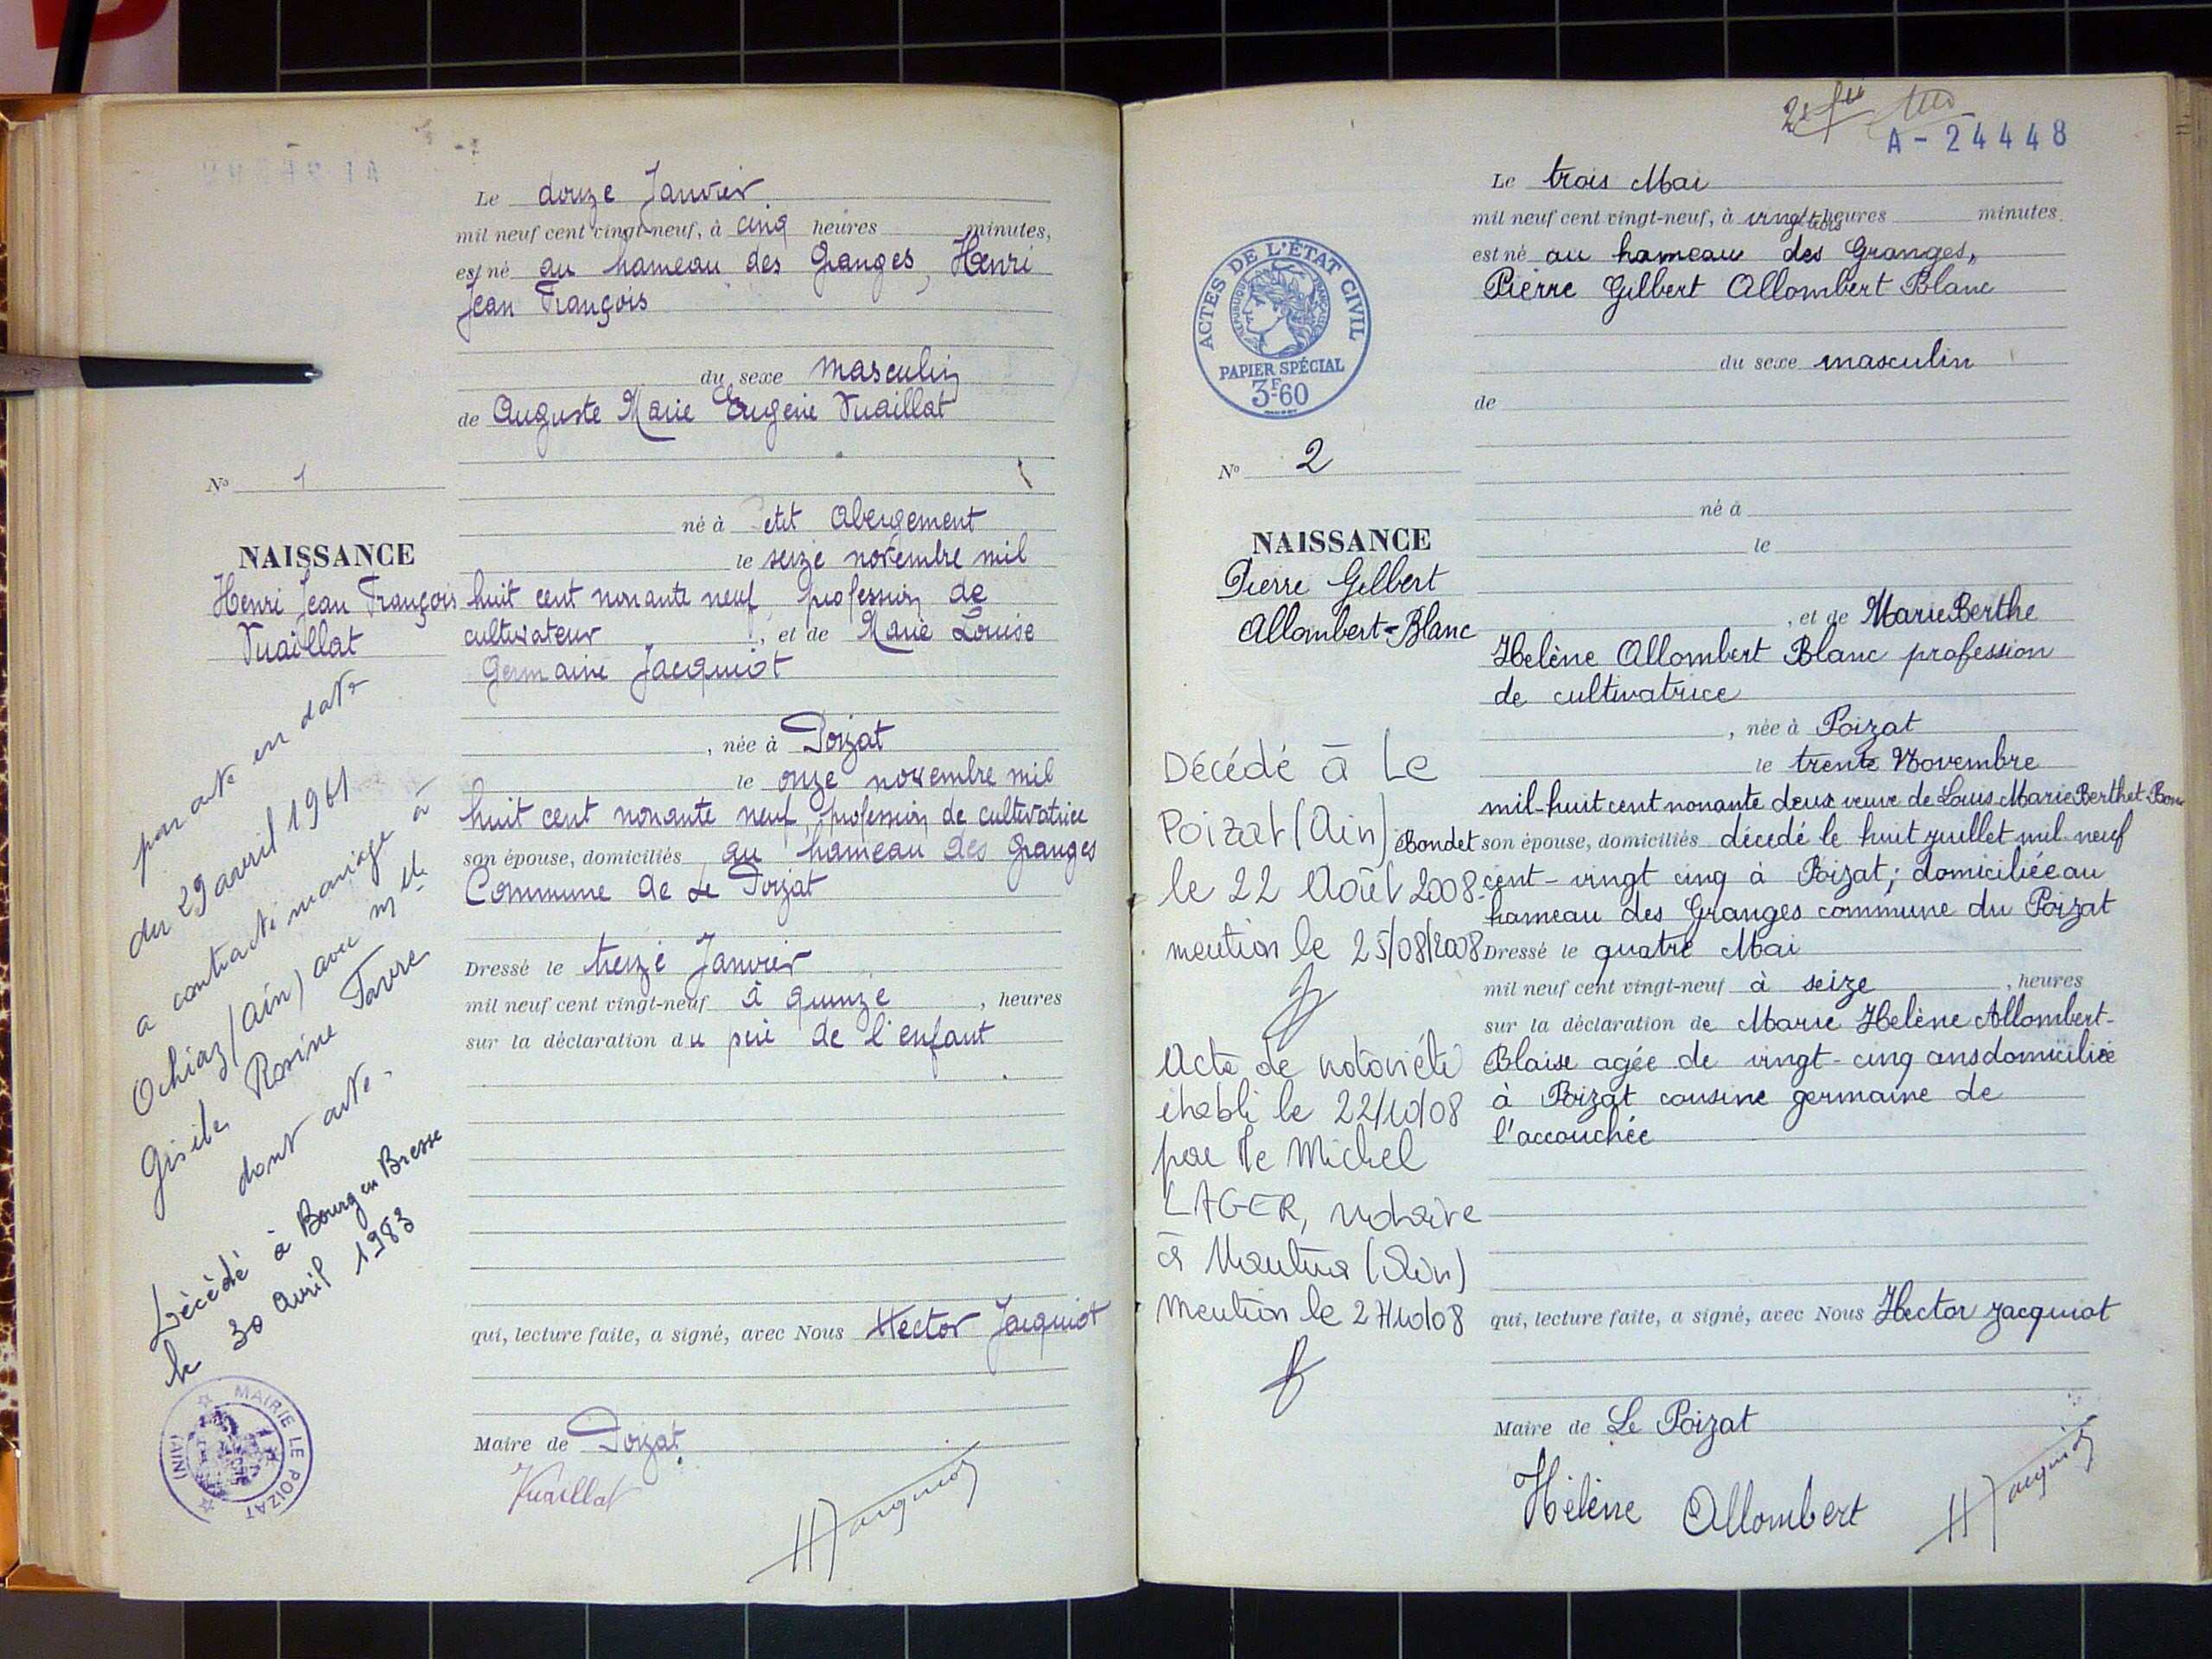 Le douze Janvier
mil neuf cent vingt-neuf, à cinq heures minutes,
est né au hameau des Granges, Henri
Jean François
du sexe masculin
de Auguste Marie Eugène Vuaillat
né à Petit Abergement
le seize novembre mil
huit cent nonante neuf, profession de
cultivateur, et de Marie Louise
Germaine Jacquiot
, née à Poizat
le onze novembre mil
huit cent nonante neuf, profession de cultivatrice
son épouse, domiciliés au hameau des Granges
Commune de Le Poizat
Dressé le treize Janvier
mil neuf cent vingt-neuf à quinze, heures
sur la déclaration du père de l'enfant
qui, lecture faite, a signé, avec Nous Hector Jacquiot
Maire de Poizat
Vuaillat
HJacquiot
No 1
NAISSANCE
Henri Jean François
Vuaillat
par acte en date
du 29 avril 1961
a contracté mariage à
Ochiaz (Ain) avec Mlle
Gisèle Rosine Favre
dont acte.
Décédé à Bourg en Bresse
le 30 avril 1983
MAIRIE LE POIZAT
(AIN)
A-24448
Le trois Mai
mil neuf cent vingt-neuf, à vingt trois heures minutes.
est né au hameau des Granges,
Pierre Gilbert Allombert Blanc
du sexe masculin
de
né à
le
, et de Marie Berthe
Helène Allombert Blanc profession
de cultivatrice
, née à Poizat
le trente Novembre
mil-huit cent nonante deux veuve de Louis Marie Berthet-Bon
Bondet son épouse, domiciliés décédé le huit juillet mil neuf
cent-vingt cinq à Poizat; domiciliée au
hameau des Granges commune du Poizat
Dressé le quatre Mai
mil neuf cent vingt-neuf à seize, heures
sur la déclaration de Marie Helène Allombert-
Blaise agée de vingt-cinq ans domiciliée
à Poizat cousine germaine de
l'accouchée
qui, lecture faite, a signé, avec Nous Hector Jacquiot
Maire de Le Poizat
Hélène Allombert
HJacquiot
ACTES DE L'ÉTAT CIVIL
RÉPUBLIQUE FRANÇAISE
PAPIER SPÉCIAL
3F60
No 2
NAISSANCE
Pierre Gilbert
Allombert-Blanc
Décédé à Le
Poizat (Ain)
le 22 Août 2008.
mention le 25/08/2008
Acte de notoriété
établi le 22/10/08
par Me Michel
LAGER, notaire
à Nantua (Ain)
mention le 27/10/08